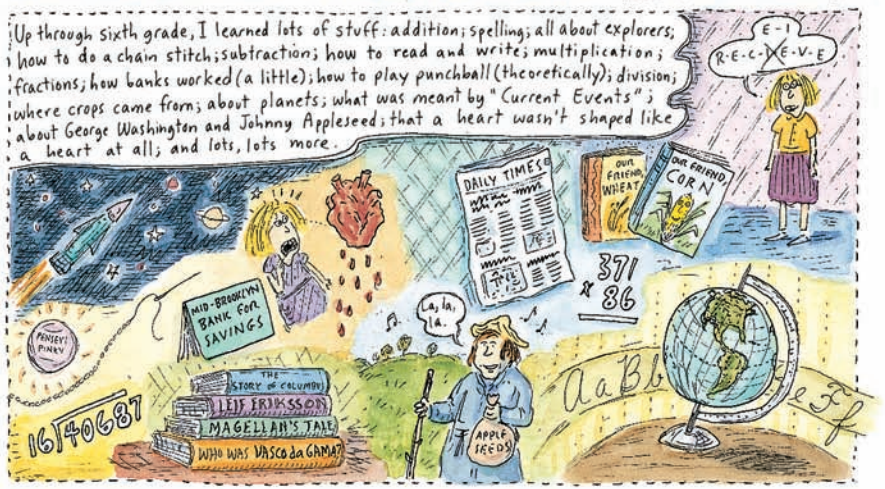 Up through sixth grade, I learned lots of stuff: addition; spelling; all about explorers;
how to do a chain stitch; subtraction; how to read and write; multiplication;
fractions; how banks worked (a little); how to play punchball (theoretically); division;
where crops came from; about planets; what was meant by "Current Events";
about George Washington and Johnny Appleseed; that a heart wasn't shaped like
a heart at all; and lots, lots more.
E-I
R-E-C-I-E-V-E
DAILY TIMES
OUR
FRIEND,
WHEAT
OUR FRIEND,
CORN
371
x 86
MID-BROOKLYN
BANK FOR
SAVINGS
PENSEY
PINKY
La, la,
la.
16)40687
THE
STORY OF COLUMBUS
LEIF ERIKSSON
MAGELLAN'S TALE
WHO WAS VASCO da GAMA?
APPLE
SEEDS
A a B b
e F f